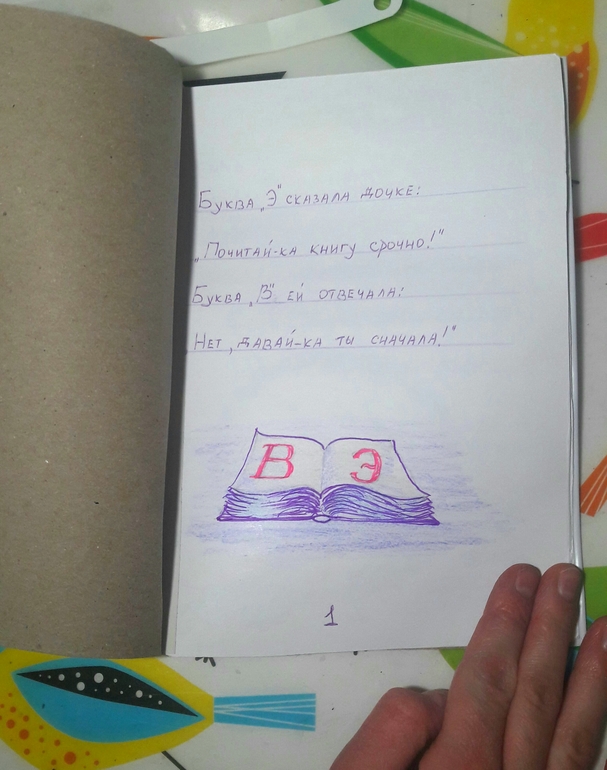 Буква „Э" сказала дочке:
„Почитай-ка книгу срочно!"
Буква „В" ей отвечала:
Нет, давай-ка ты сначала!"
В Э
1